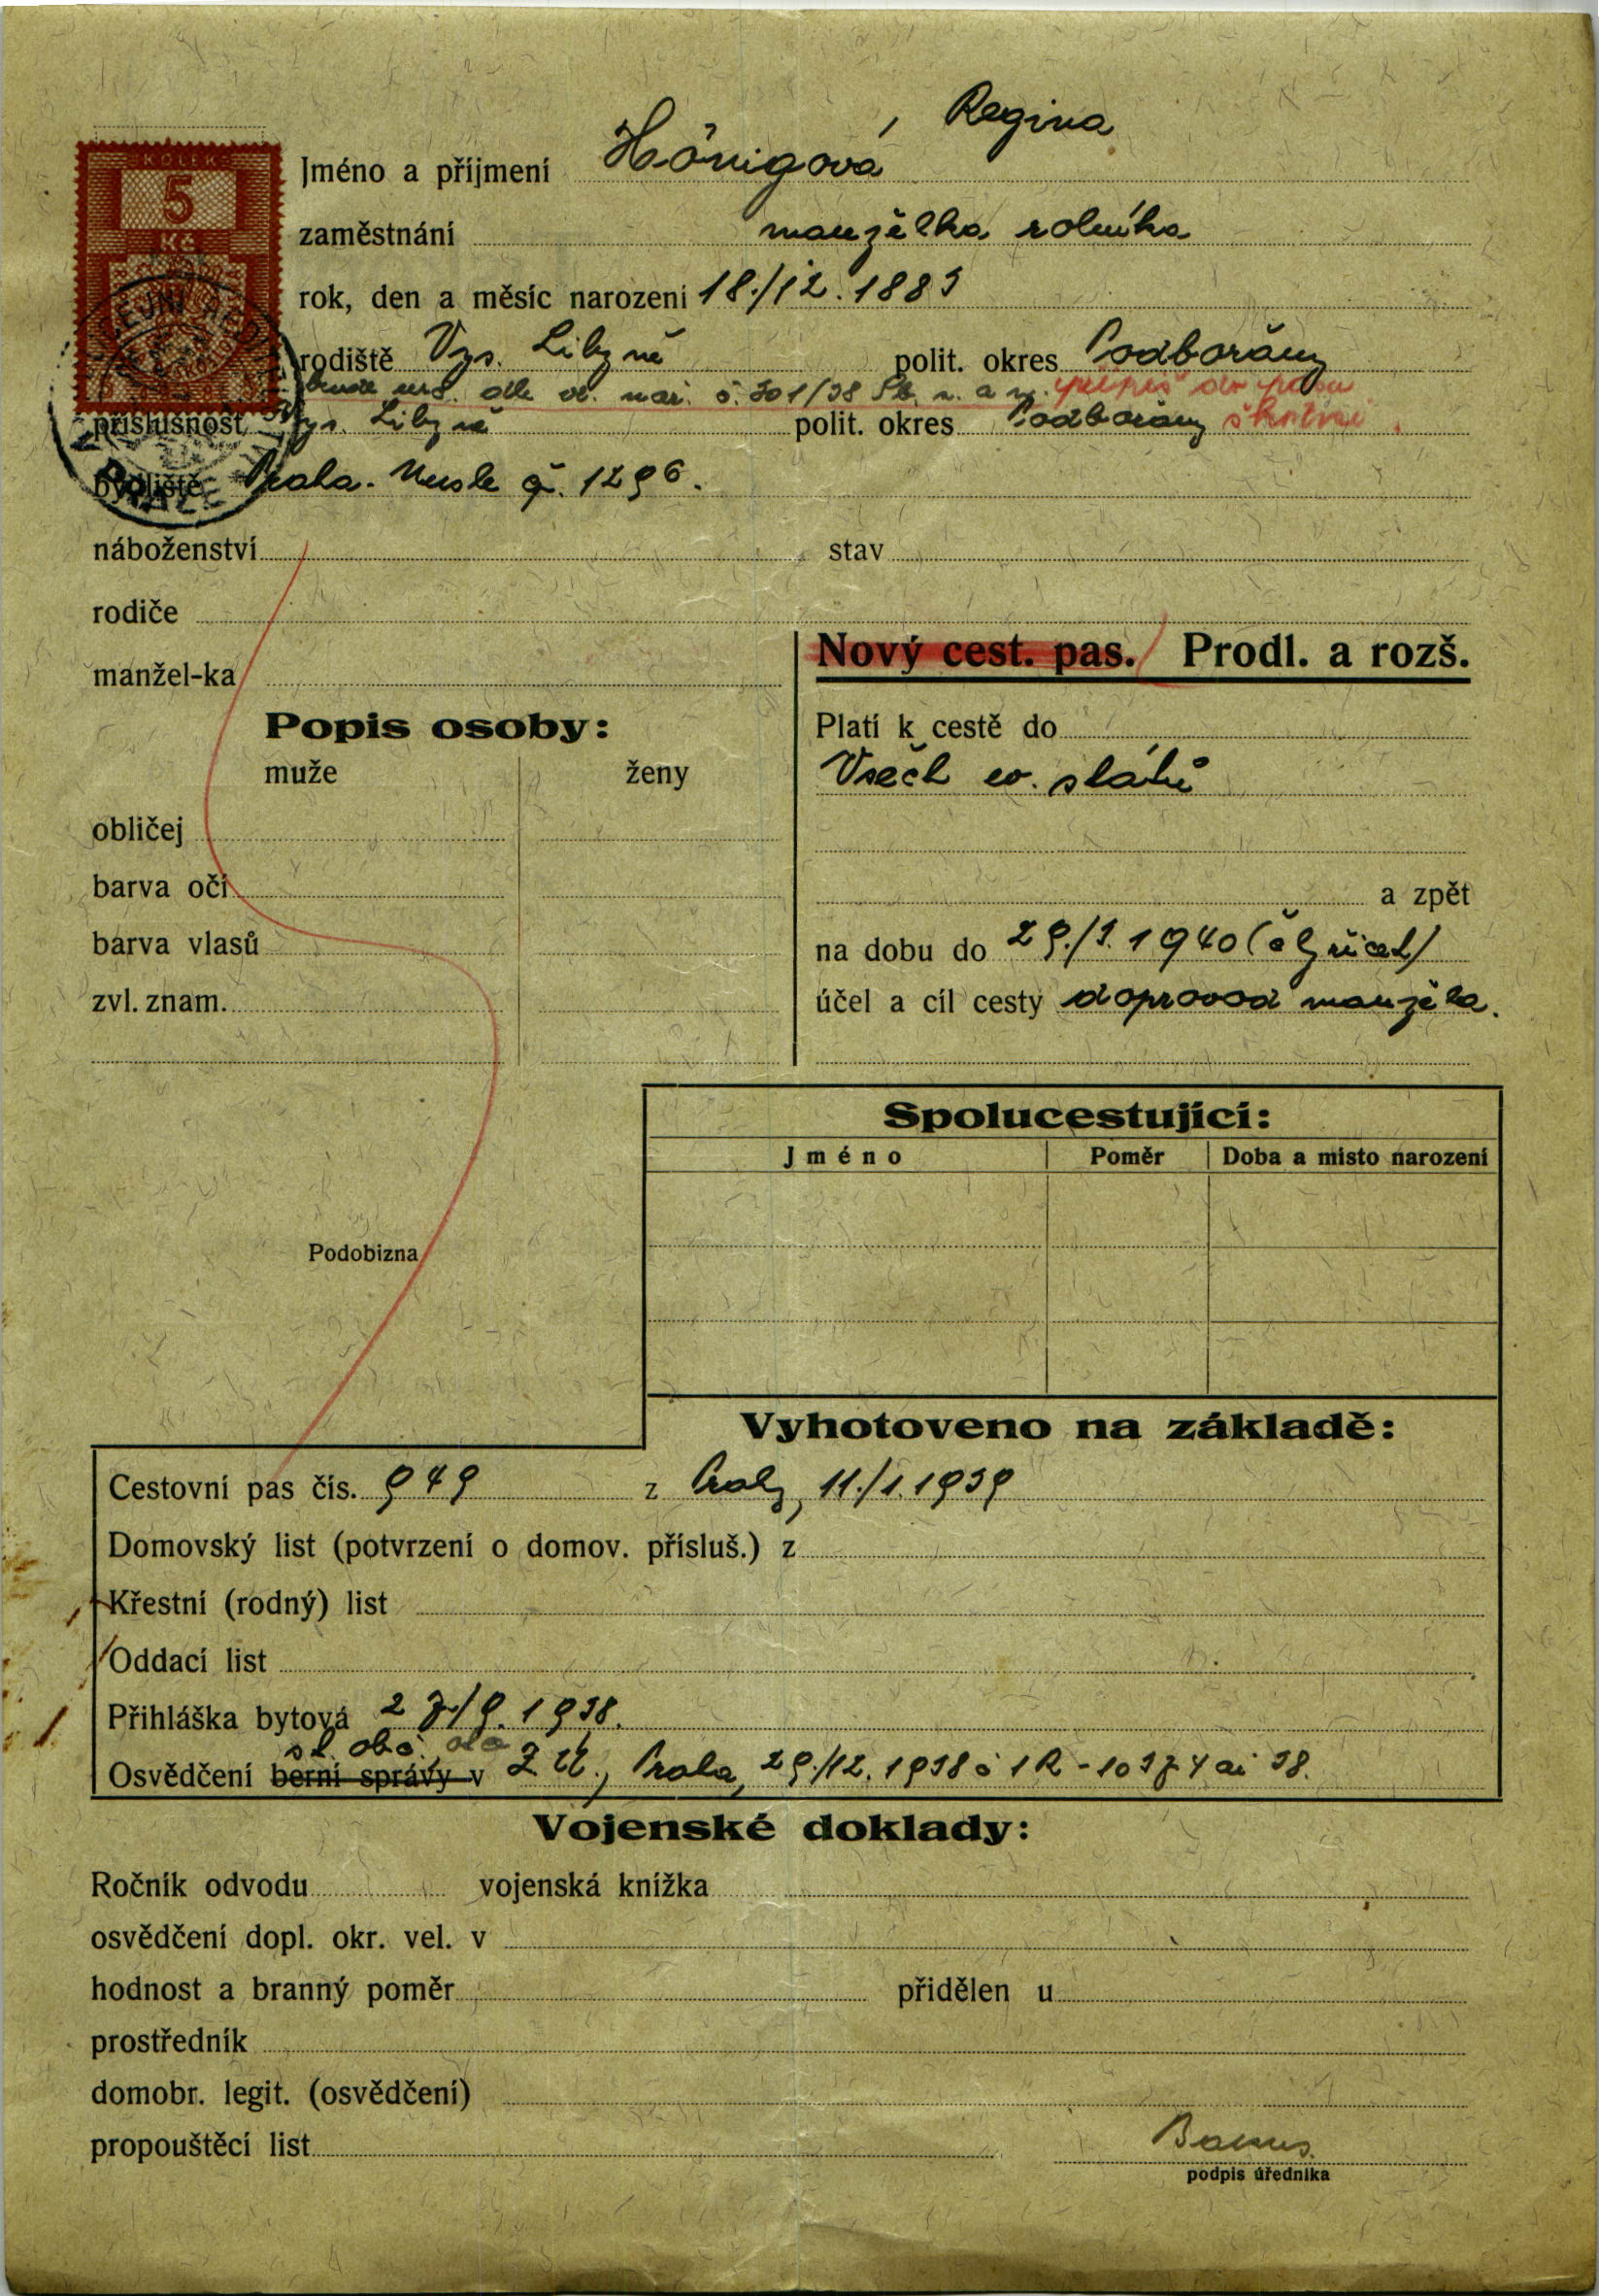 KOLEK
5
Kč
Jméno a příjmení Hönigová, Regina
zaměstnání manželka rolníka
rok, den a měsíc narození 18./12. 1883
rodiště Vys. Libyně polit. okres Podbořany
bude urč. dle vl. nař. č. 301/38 Sb. z. a n. připiš do pasu
příslušnost Vys. Libyně polit. okres Podbořany
bydliště Praha-Nusle č. 1296.
náboženství stav
rodiče
manžel-ka
Nový cest. pas. Prodl. a rozš.
Popis osoby:
muže ženy
obličej
barva očí
barva vlasů
zvl. znam.
Platí k cestě do
Všech ev. států
a zpět
na dobu do 29./3. 1940 (čtyřicet)
účel a cíl cesty doprovod manžela.
Podobizna
Spolucestující:
Jméno Poměr Doba a místo narození
Vyhotoveno na základě:
Cestovní pas čís. 949 z Prahy, 11./1. 1939
Domovský list (potvrzení o domov. přísluš.) z
Křestní (rodný) list
Oddací list
Přihláška bytová 27./9. 1938.
st. obč.
Osvědčení berní správy v Z. Ú., Praha, 29./12. 1938 č 1R-10374 ai 38.
Vojenské doklady:
Ročník odvodu vojenská knížka
osvědčení dopl. okr. vel. v
hodnost a branný poměr přidělen u
prostředník
domobr. legit. (osvědčení)
propouštěcí list
podpis úředníka